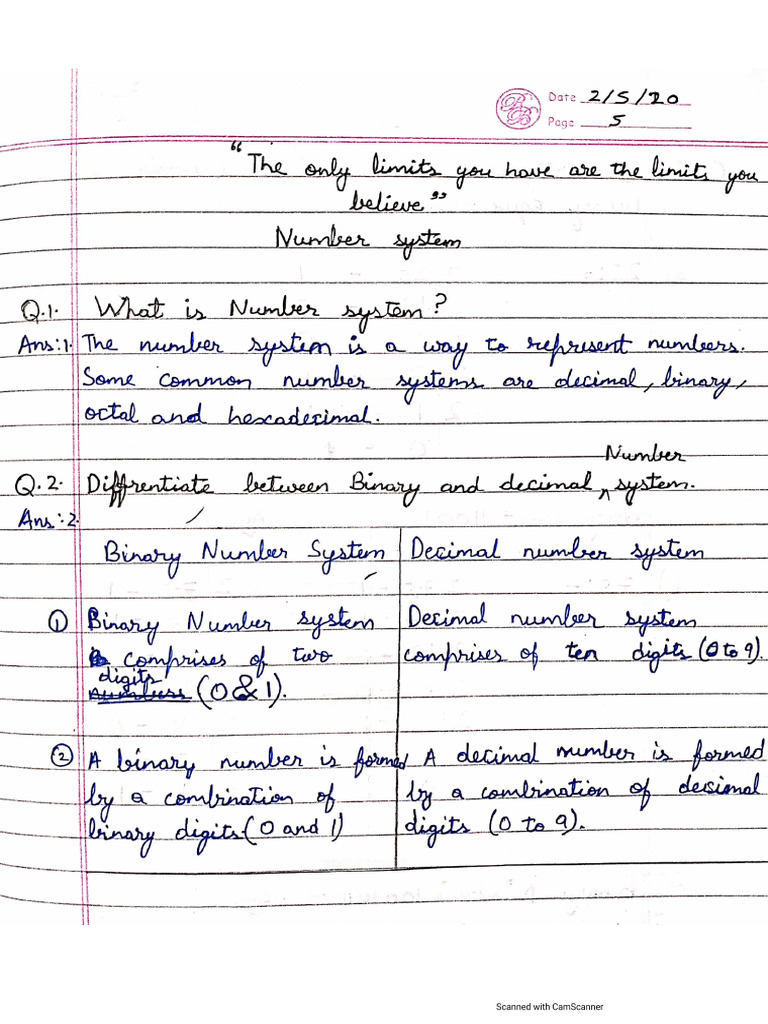 Date 2/5/20
Page 5
"The only limits you have are the limits you
believe"
Number system
Q.1. What is Number system?
Ans:1. The number system is a way to represent numbers.
Some common number systems are decimal, binary,
octal and hexadecimal.
Number
Q.2. Diffrentiate between Binary and decimal ^ system.
Ans:2.
Binary Number System | Decimal number system
① Binary Number system
comprises of two
digits
numbers (0 & 1).
Decimal number system
comprises of ten digits (0 to 9).
② A binary number is formed
by a combination of
binary digits (0 and 1)
A decimal number is formed
by a combination of decimal
digits (0 to 9).
Scanned with CamScanner